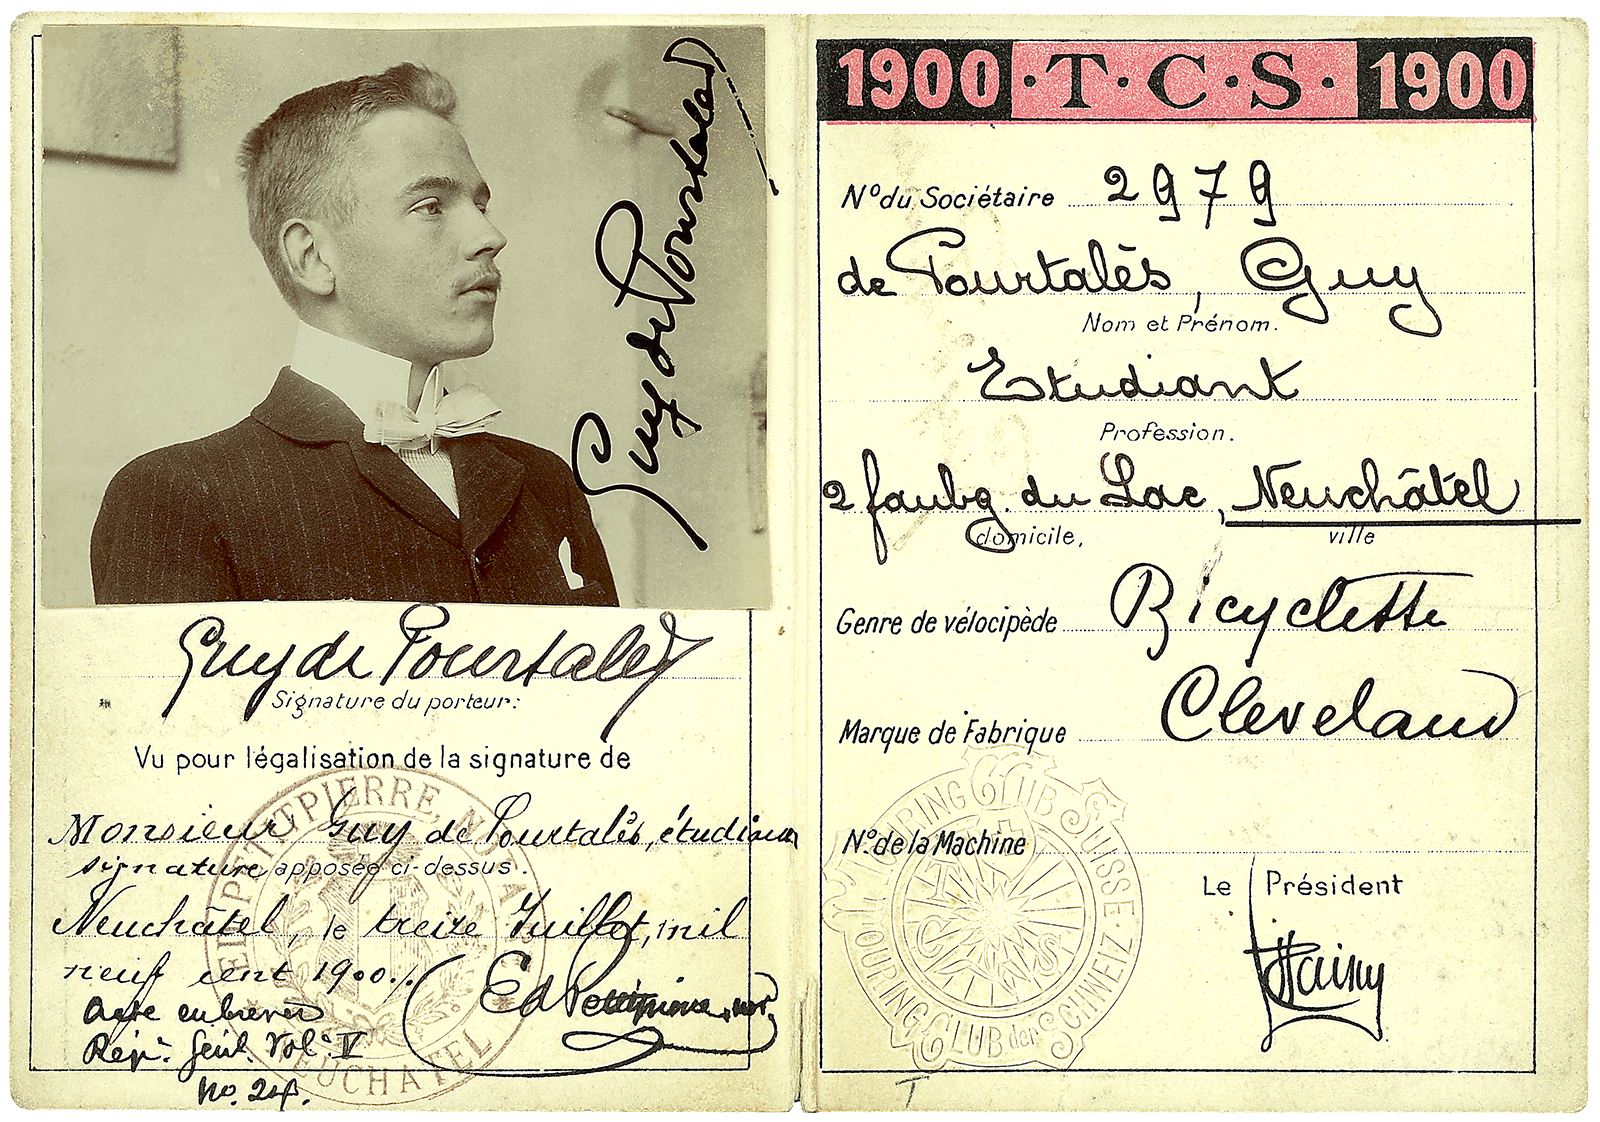 Guy de Pourtalès
Guy de Pourtalès
Signature du porteur:
Vu pour légalisation de la signature de
Monsieur Guy de Pourtalès, étudiant
signature apposée ci-dessus.
Neuchâtel, le treize Juillet, mil
neuf cent 1900.
Acte en brevet
Rép. Gén. Vol. V
No. 24
Ed Petitpierre, not.
ED. PETITPIERRE, NOTAIRE
NEUCHATEL
1900 · T · C · S · 1900
No du Sociétaire 2979
de Pourtalès, Guy
Nom et Prénom.
Etudiant
Profession.
2 faubg. du Lac, Neuchâtel
domicile, ville
Genre de vélocipède Bicyclette
Marque de Fabrique Cleveland
No. de la Machine
Le Président
TOURING CLUB SUISSE
TOURING CLUB der SCHWEIZ
T